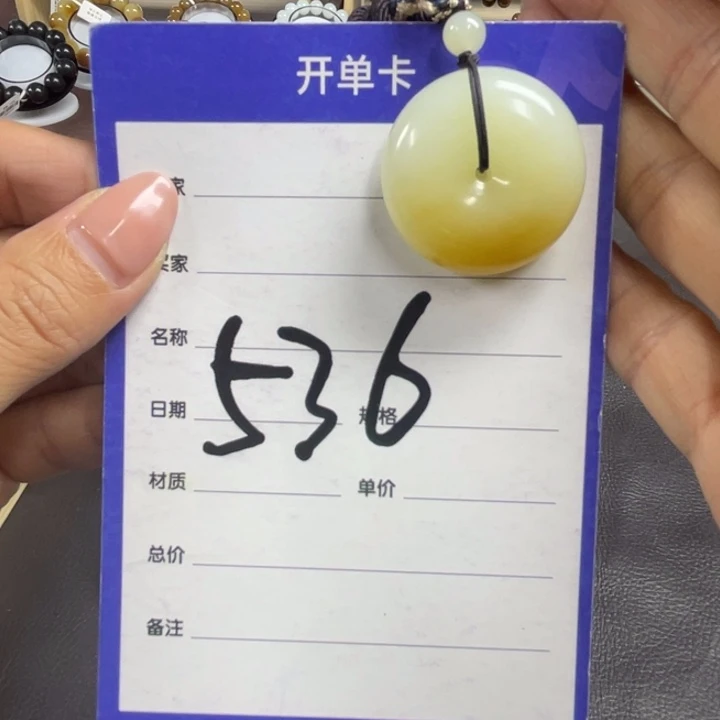 开单卡
家
买家
名称
536
日期 规格
材质 单价
总价
备注